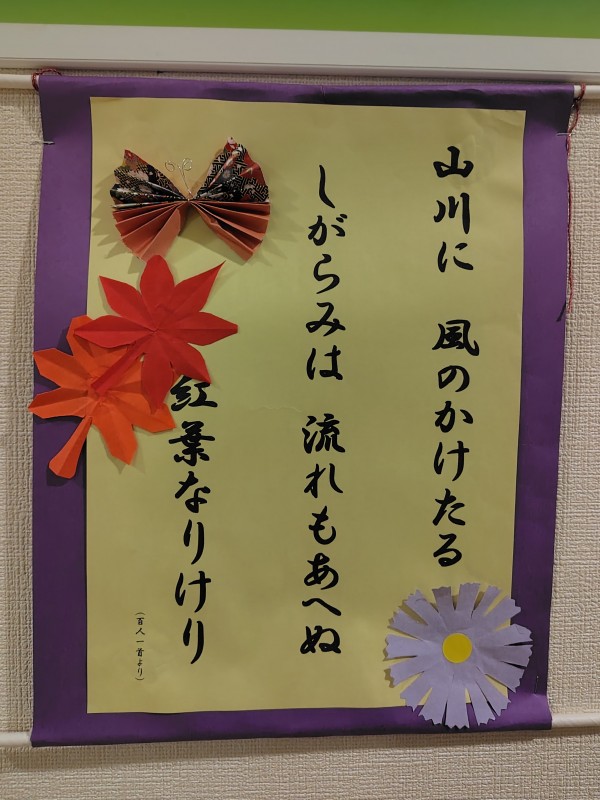 山川に 風のかけたる
しがらみは 流れもあへぬ
紅葉なりけり
(百人一首より)